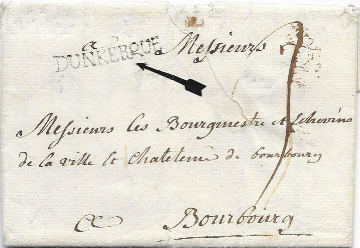 a Messieurs
DUNKERQUE
Messieurs les Bourgmestre et Echevins
de la ville et Chatelenie de bourbourg
a Bourbourg